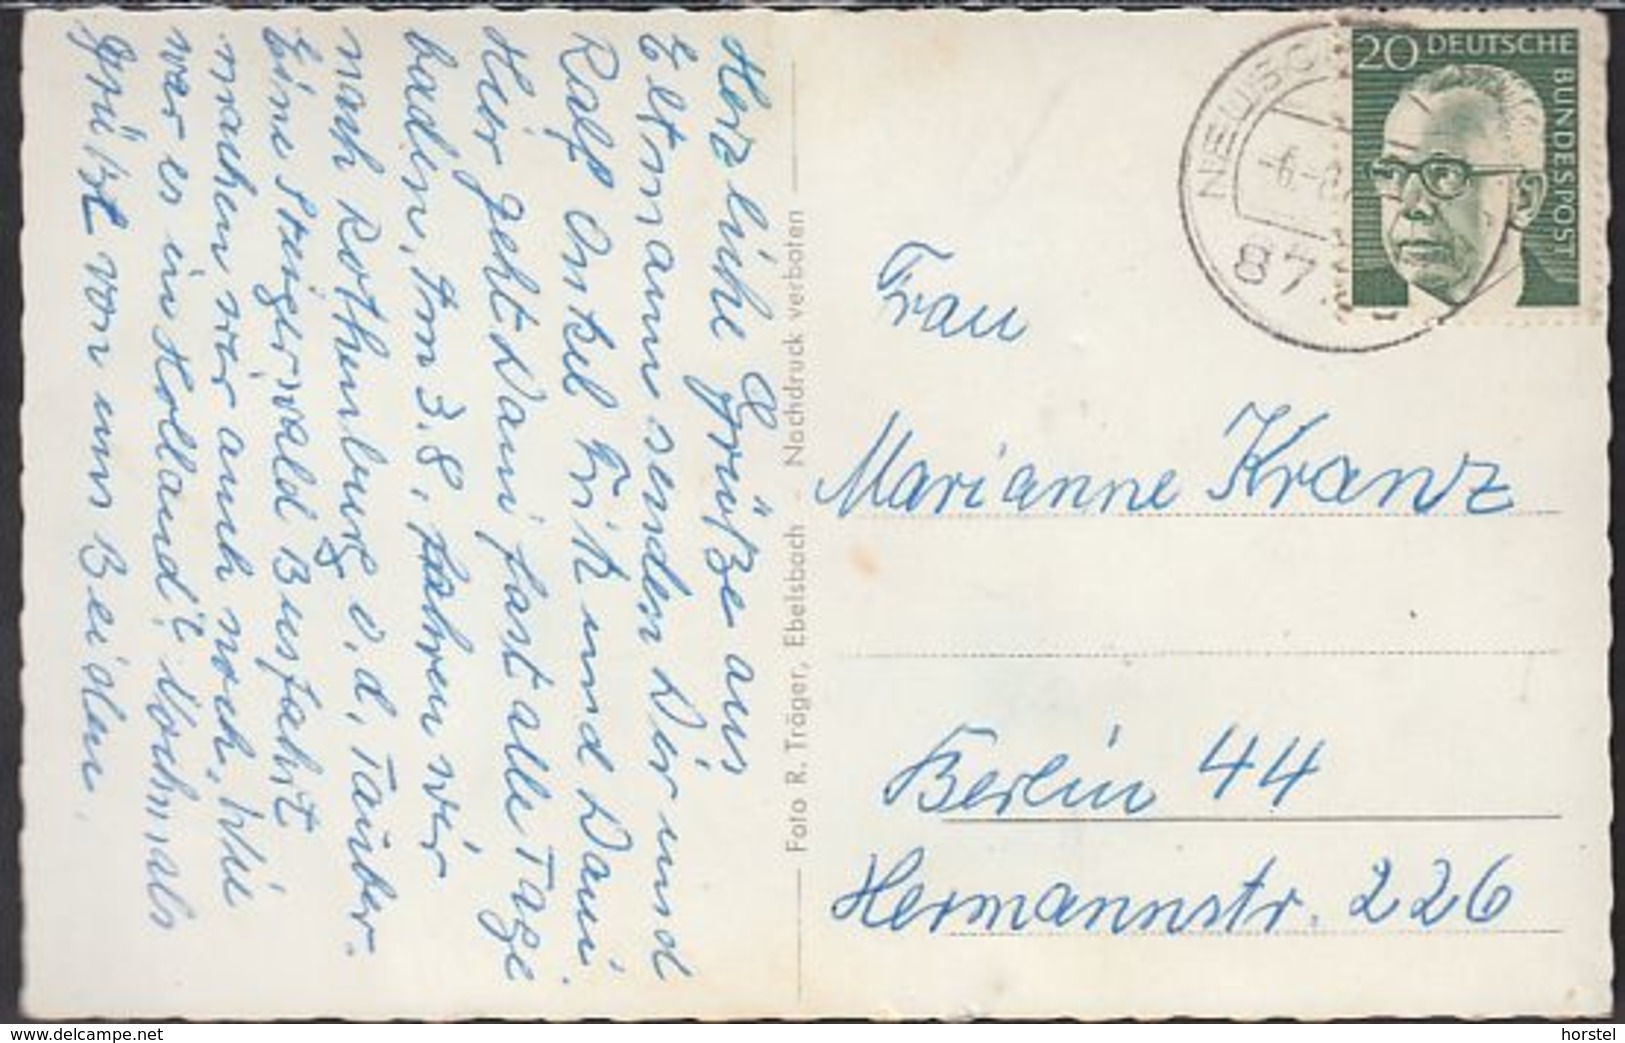 Herzliche Grüße aus
Eltmann senden Dir und
Ralf Onkel Erik und Dani.
Hier geht Dani fast alle Tage
baden, Am 3.8. fahren wir
nach Rothenburg o.d. Tauber.
Eine Steigerwald Busfahrt
machen wir auch noch. Wie
war es in Holland? Nochmals
grüßt von uns Beiden.
Foto R. Träger, Ebelsbach - Nachdruck verboten
20 DEUTSCHE
BUNDESPOST
-6.-8
87
Frau
Marianne Kranz
Berlin 44
Hermannstr. 226
www.delcampe.net
horstel